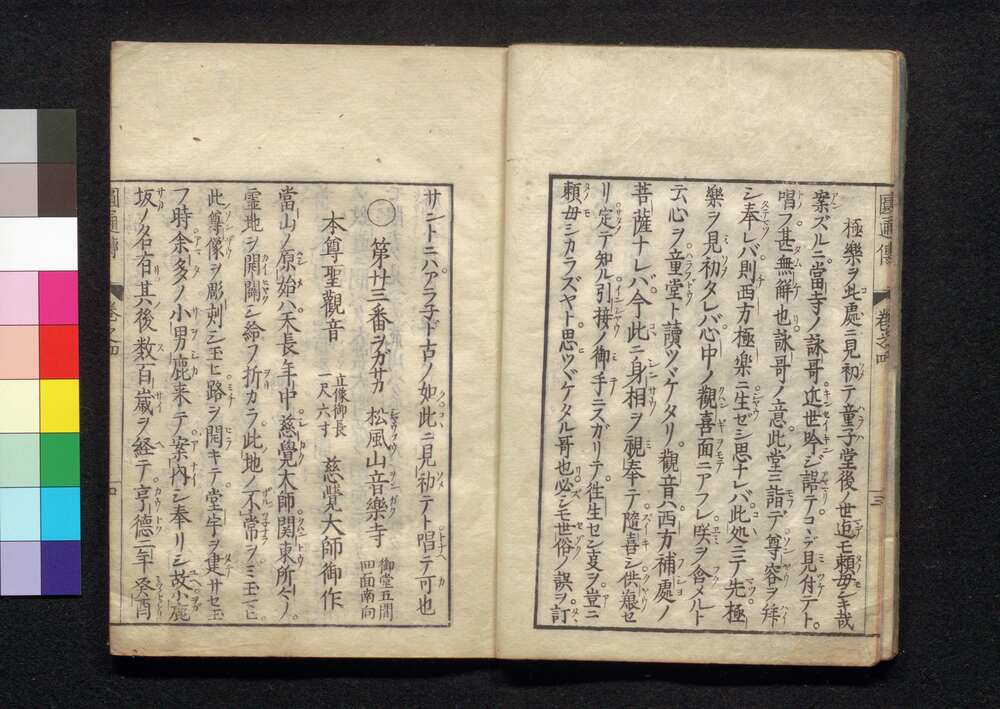 極樂ヲ此處ニ見初テ童子堂後ノ世迠モ頼毋シキ哉
案ズルニ當寺ノ詠哥近世吟ジ誤テコヽヂ見付テト
唱フ甚無觧也詠哥ノ意此堂ニ詣デ尊容ヲ拜
シ奉レバ則西方極樂ニ生ゼシ思ナレバ此処ニテ先極
樂ヲ見初タレバ心中ノ觀喜面ニアフレ咲ヲ含メルト
云心ヲ童堂ト讀ツヾケタリ觀音ハ西方補處ノ
菩薩ナレバ今此ニ身相ヲ視奉テ隨喜シ供養セ
リ定テ知ル引接ノ御手ニスガリテ徃生セン支ヲ豈ニ
頼毋シカラズヤト思ツヾケタル哥也必シモ世俗ノ誤ヲ訂
サントニハアラ子ド古ノ如此ニ見初テト唱テ可也
〇第廿三番ヲガサカ 松風山音樂寺 御堂五間四面南向
本尊聖觀音 立像御長一尺六寸 慈覺大師御作
當山ノ原始ハ天長年中慈覺大師関東所々ノ
霊地ヲ開闢シ給フ折カラ此ノ地ノ不常ヲミ玉ヒ
此尊像ヲ彫刻シ玉ヒ路ヲ開キテ堂宇ヲ建サセ玉
フ時余多ノ小男鹿来テ案内シ奉リシ故小鹿
坂ノ名有其後数百歳ヲ経テ亨德二年癸酉
圓通傳 卷之四 三
圓通傳 卷之四 四